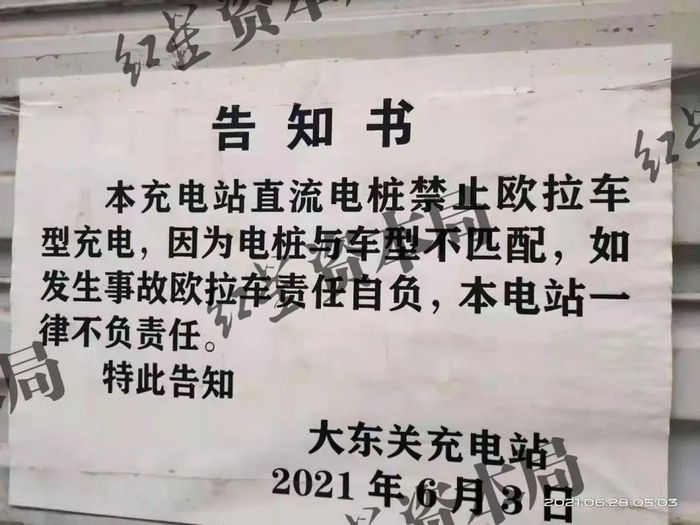 红星资本局
告知书
本充电站直流电桩禁止欧拉车
型充电，因为电桩与车型不匹配，如
发生事故欧拉车责任自负，本电站一
律不负责任。
特此告知
大东关充电站
2021年6月3日
2021.06.28 05:03
红星
红星资本局
局
资本局